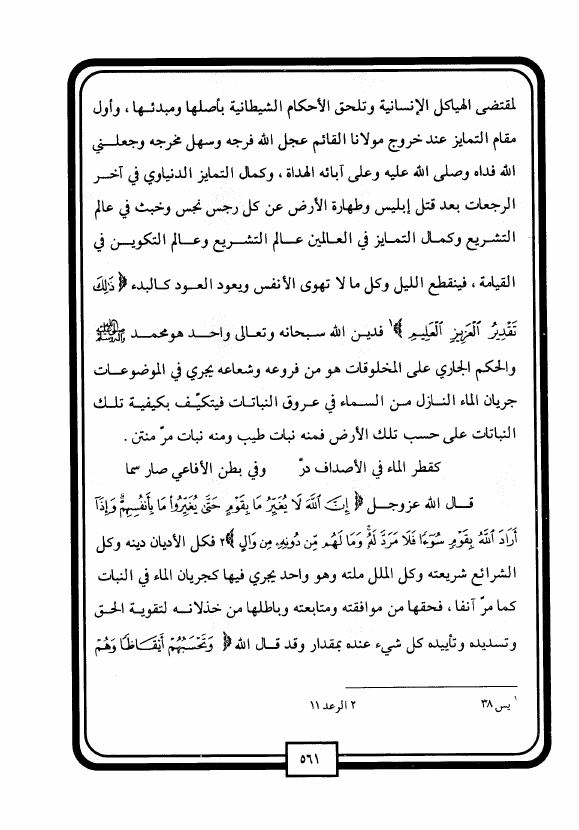 لمقتضى الهياكل الإنسانية وتلحق الأحكام الشيطانية بأصلها ومبدئها ، وأول
مقام التمايز عند خروج مولانا القائم عجل الله فرجه وسهل مخرجه وجعلني
الله فداه وصلى الله عليه وعلى آبائه الهداة ، وكمال التمايز الدنياوي في آخر
الرجعات بعد قتل إبليس وطهارة الأرض عن كل رجس نجس وخبث في عالم
التشريع وكمال التمايز في العالمين عالم التشريع وعالم التكوين في
القيامة ، فينقطع الليل وكل ما لا تهوى الأنفس ويعود العود كالبدء ﴿ ذَٰلِكَ
تَقْدِيرُ ٱلْعَزِيزِ ٱلْعَلِيمِ ﴾١ فدين الله سبحانه وتعالى واحد هو محمد ﷺ
والحكم الجاري على المخلوقات هو من فروعه وشعاعه يجري في الموضوعات
جريان الماء النازل من السماء في عروق النباتات فيتكيّف بكيفية تلك
النباتات على حسب تلك الأرض فمنه نبات طيب ومنه نبات مرّ منتن .
كقطر الماء في الأصداف درّ وفي بطن الأفاعي صار سما
قال الله عزوجل ﴿ إِنَّ ٱللَّهَ لَا يُغَيِّرُ مَا بِقَوْمٍ حَتَّىٰ يُغَيِّرُوا۟ مَا بِأَنفُسِهِمْ ۗ وَإِذَآ
أَرَادَ ٱللَّهُ بِقَوْمٍ سُوٓءًا فَلَا مَرَدَّ لَهُۥ ۚ وَمَا لَهُم مِّن دُونِهِۦ مِن وَالٍ ﴾٢ فكل الأديان دينه وكل
الشرائع شريعته وكل الملل ملته وهو واحد يجري فيها كجريان الماء في النبات
كما مرّ آنفا ، فحقها من موافقته ومتابعته وباطلها من خذلانه لتقوية الحق
وتسديده وتأييده كل شيء عنده بمقدار وقد قال الله ﴿ وَتَحْسَبُهُمْ أَيْقَاظًا وَهُمْ
١ يس ٣٨ ٢ الرعد ١١
٥٦١